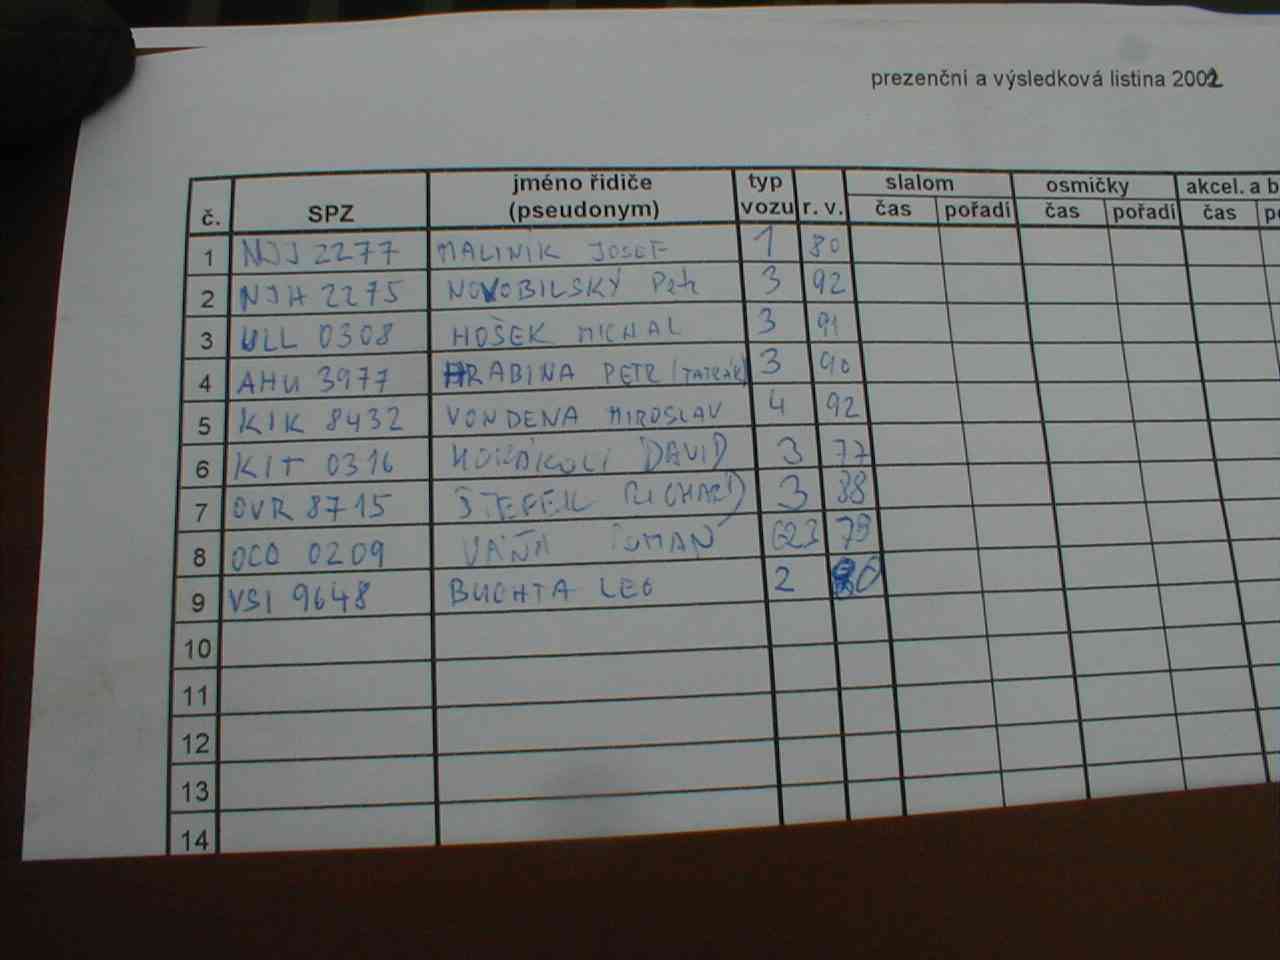 prezenční a výsledková listina 2002
č. SPZ jméno řidiče (pseudonym) typ vozu r. v. slalom osmičky akcel. a b
čas pořadí čas pořadí čas
1 NJJ 2277 MALINIK JOSEF 1 80
2 NJH 2275 NOVOBILSKÝ Petr 3 92
3 ULL 0308 HOŠEK MICHAL 3 91
4 AHU 3977 HRABINA PETR (TATRÁK) 3 90
5 KIK 8432 VONDENA MIROSLAV 4 92
6 KIT 0316 DAVID 3 77
7 OVR 8715 ŠTEFEK RICHARD 3 88
8 OCO 0209 VÁŇA 623 79
9 VSI 9648 BUCHTA LEO 2
10
11
12
13
14